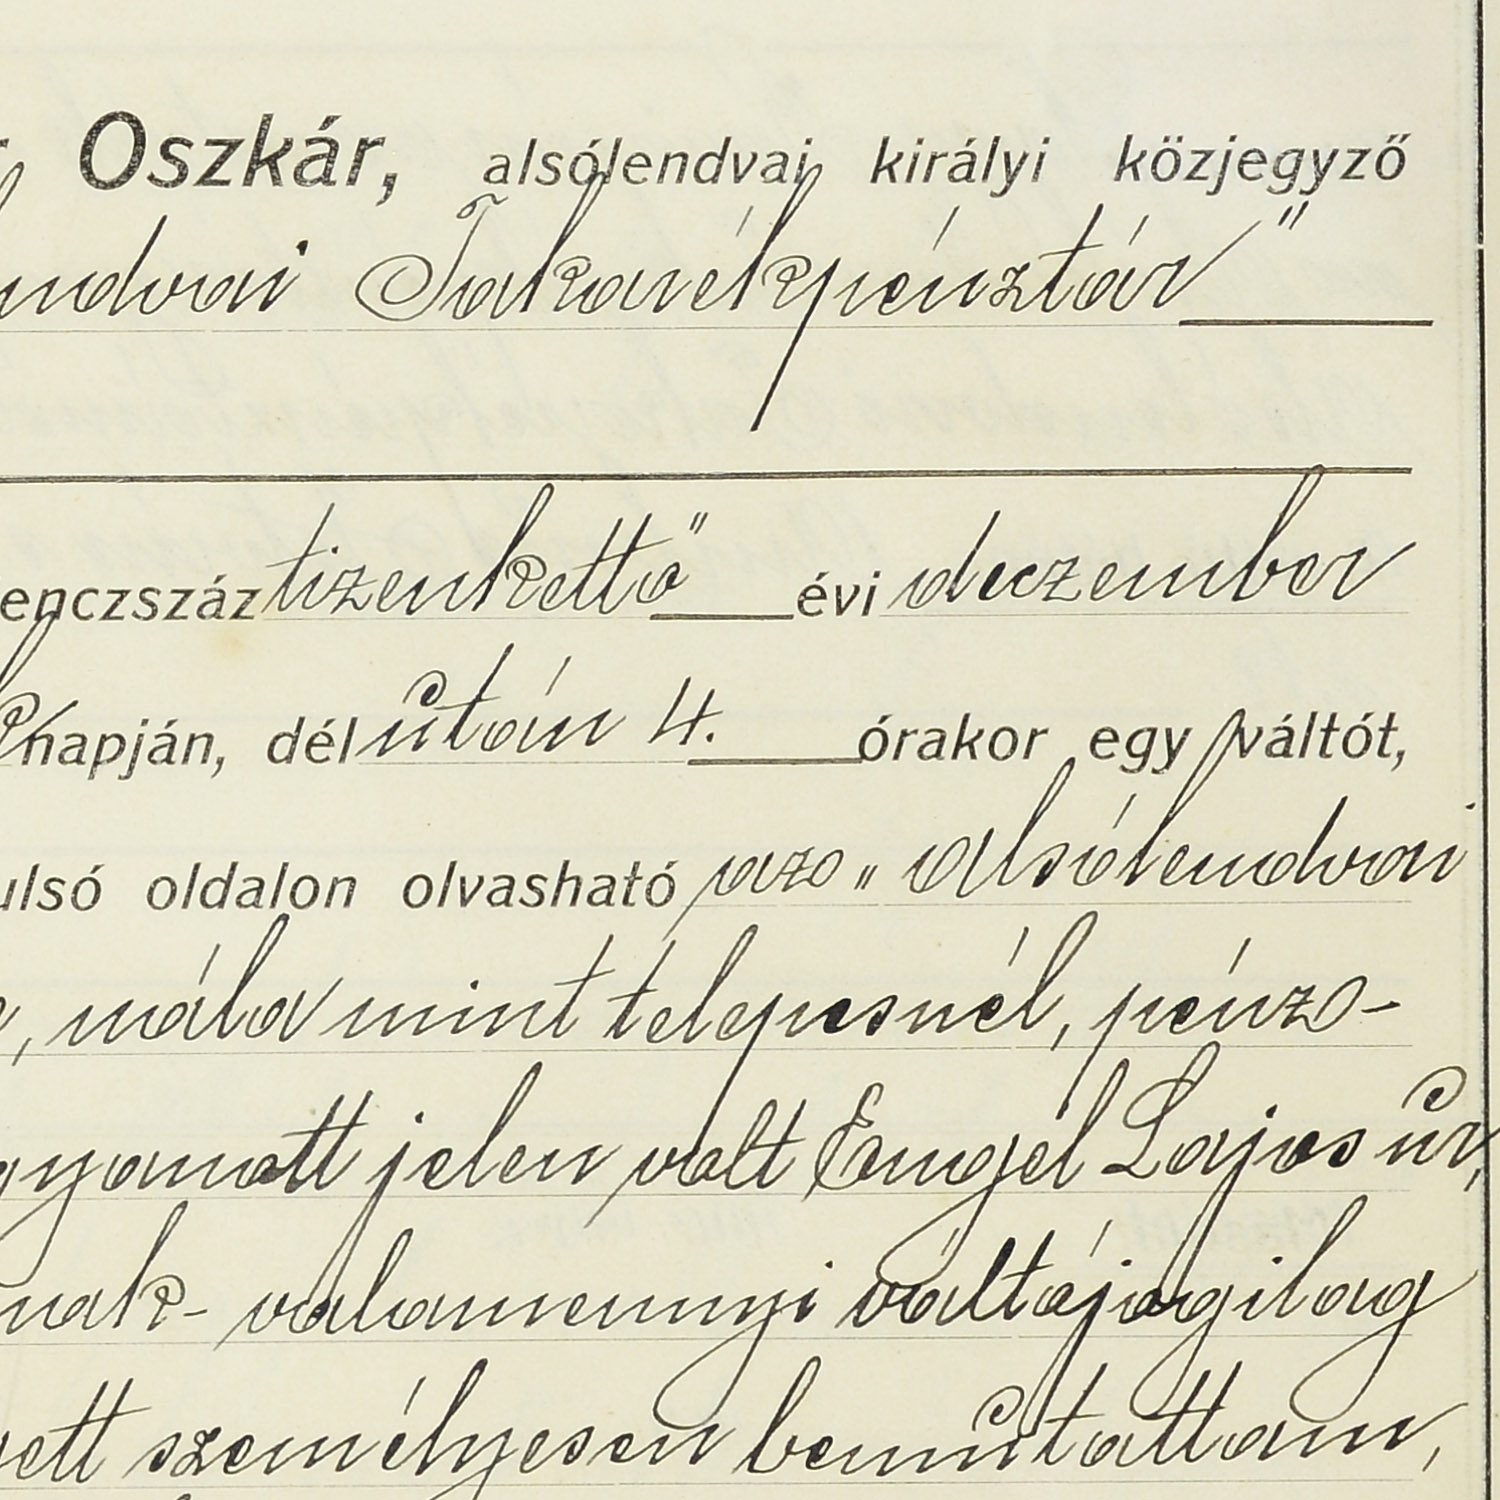 Oszkár, alsólendvai királyi közjegyző
ndvai Takarékpénztár"
enczszáz tizenkettő évi deczember
napján, dél után 4. órakor egy váltót,
ulsó oldalon olvasható az „Alsólendvai
, nála mint telepesnél, pénz-
gyanott jelen volt Engel Lajos úr,
nak- valamennyi váltójogilag
ett személyesen bemutattam,